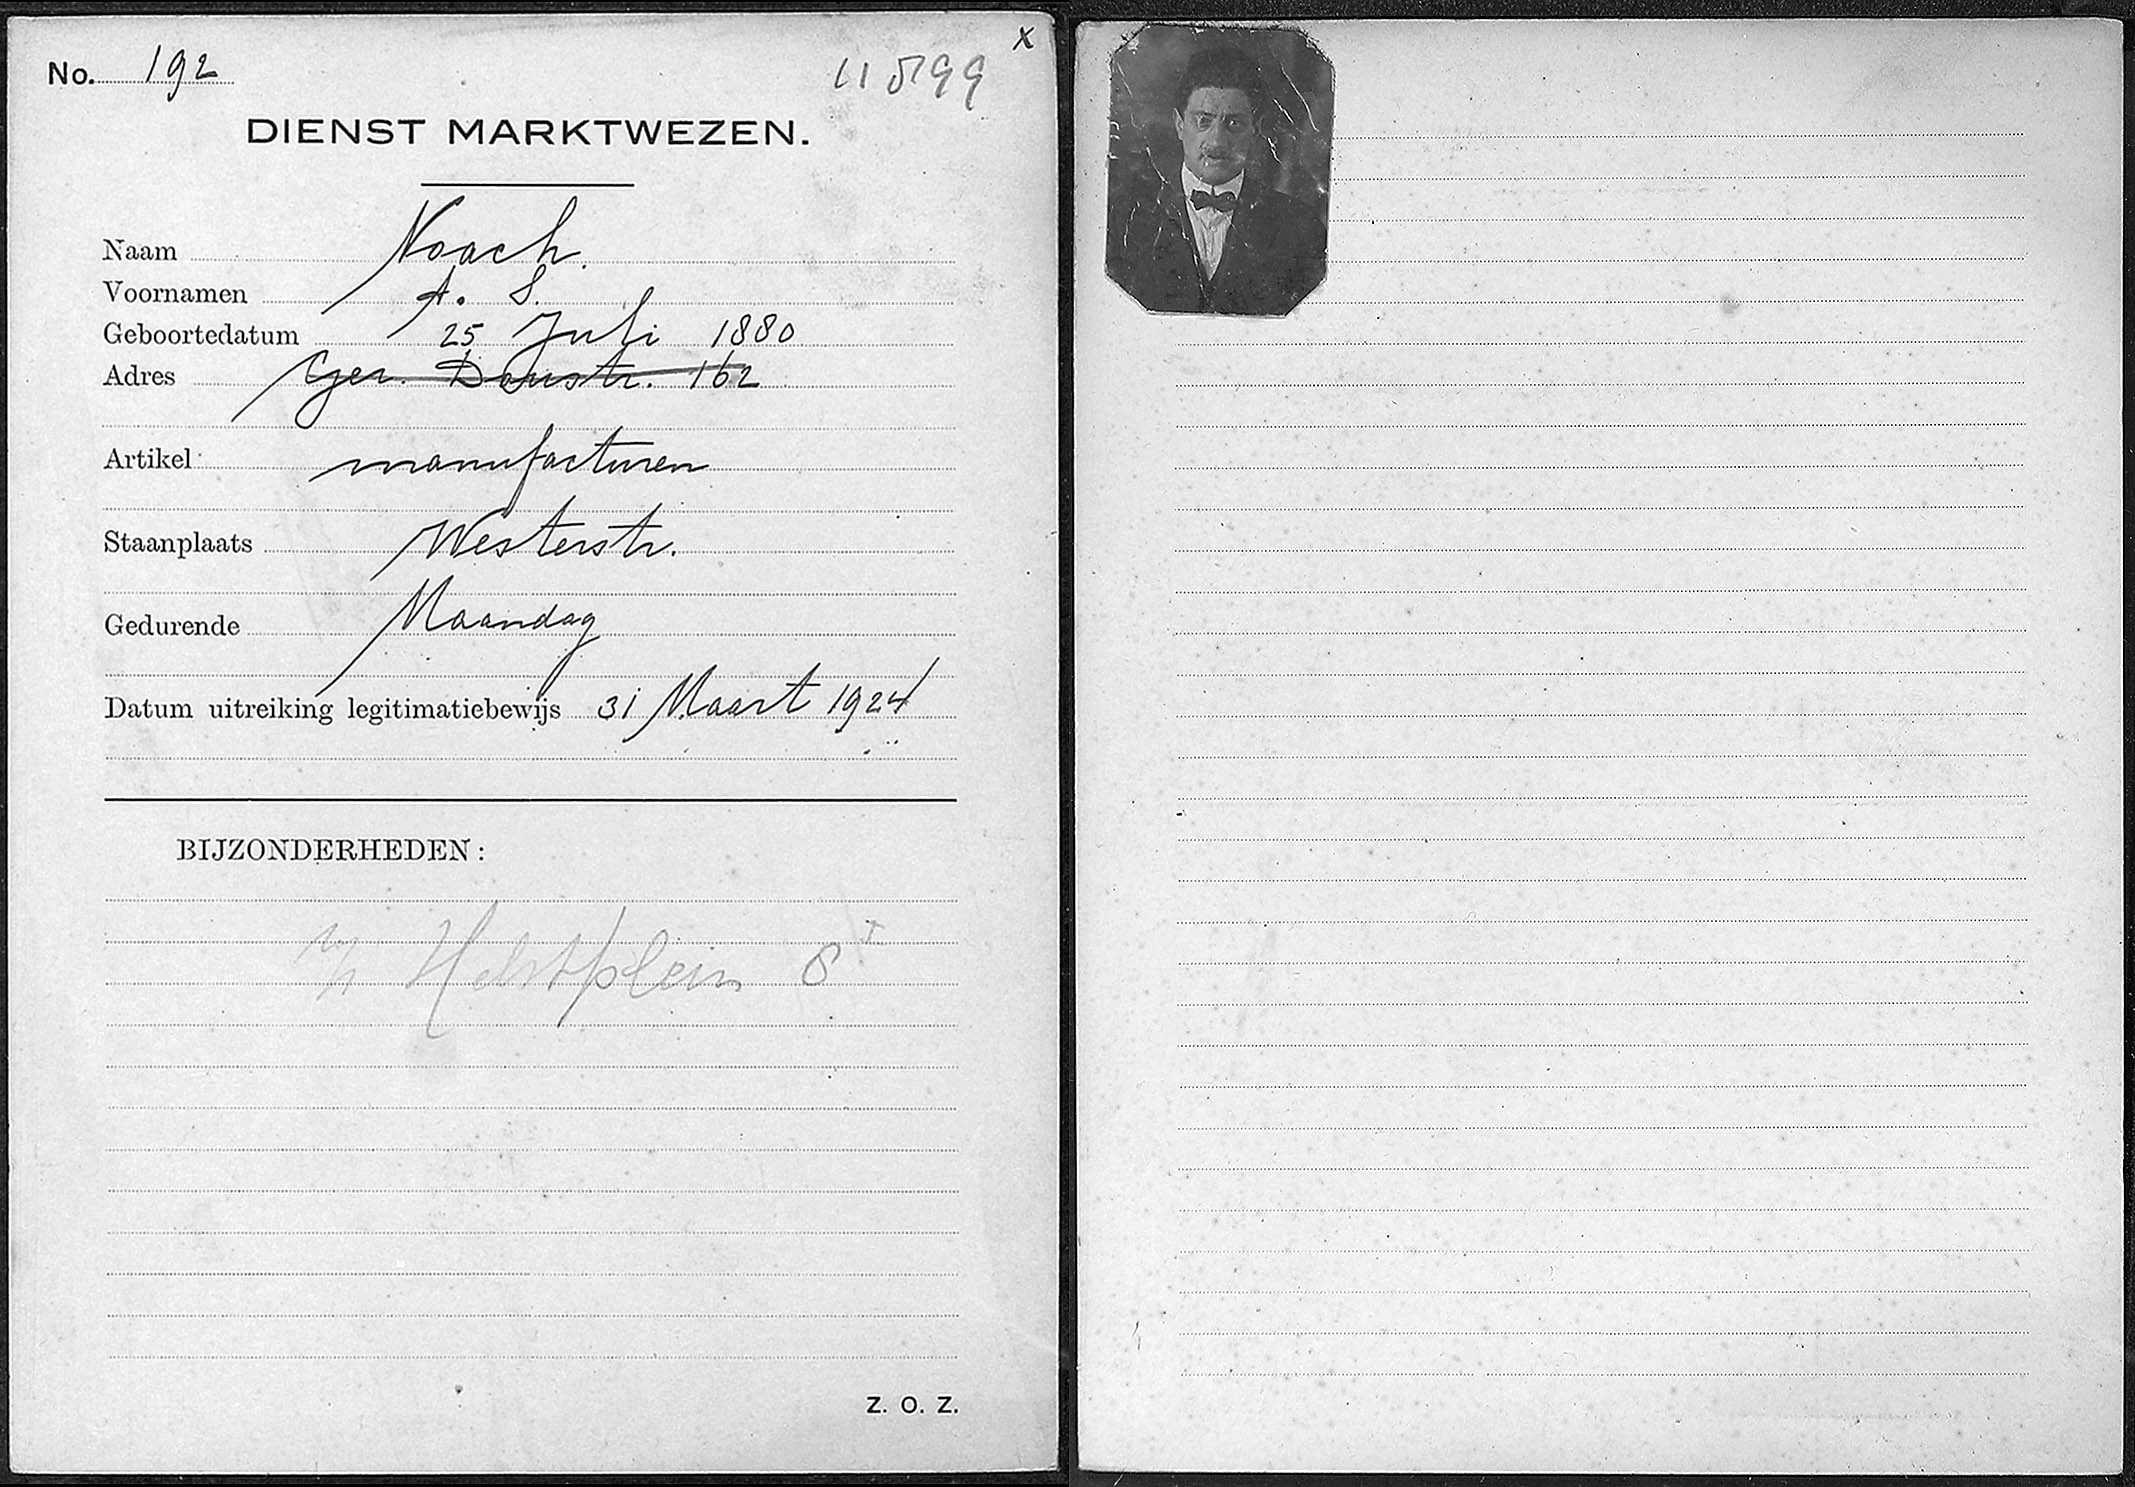 x
No. 192
11599
DIENST MARKTWEZEN.
Naam Noach.
Voornamen A. S.
Geboortedatum 25 Juli 1880
Adres Ger. Doustr. 162
Artikel manufacturen
Staanplaats Westerstr.
Gedurende Maandag
Datum uitreiking legitimatiebewijs 31 Maart 1924
BIJZONDERHEDEN:
v/h Helstplein 8 I
Z. O. Z.